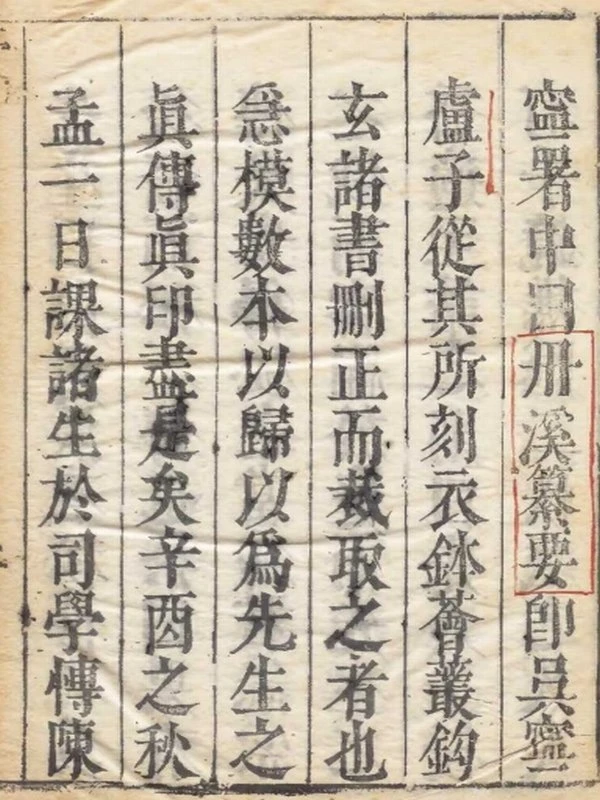 寧署中曰丹溪纂要卽吳寧
盧子從其所刻衣鉢薈叢鈎
玄諸書刪正而裁取之者也
急模數本以歸以爲先生之
眞傳眞印盡是矣辛酉之秋
孟一日課諸生於司學愽陳